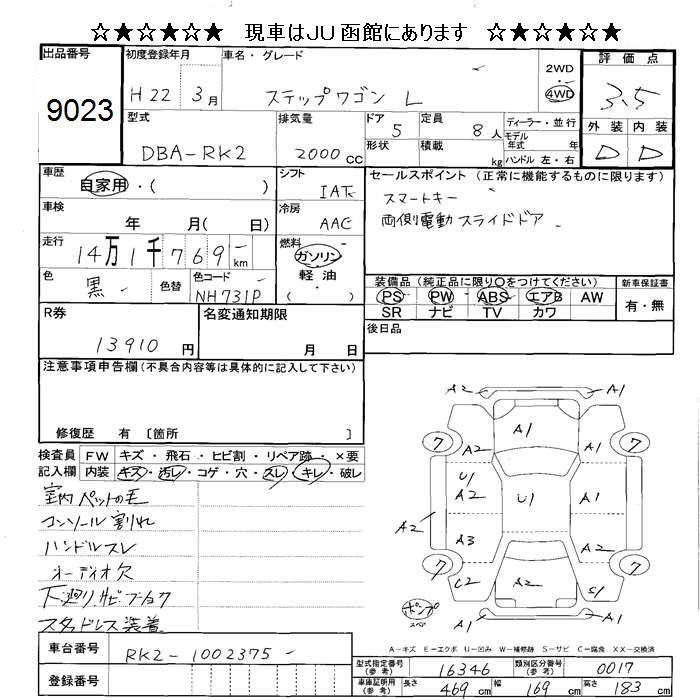 ☆★☆★☆★ 現車はJU函館にあります ☆★☆★☆★
出品番号 初度登録年月 車名・グレード 2WD 評価点
9023 H22 3月 ステップワゴン L 4WD 3.5
型式 排気量 ドア 定員 ディーラー・並行 外装 内装
DBA-RK2 2000cc 5 8人 モデル年式 年式 D D
形状 積載 kg ハンドル 左・右
車歴 シフト セールスポイント (正常に機能するものに限ります)
自家用・( ) IAT スマートキー
車検 年 月( 日) 冷房 AAC 両側電動スライドドア
走行 14万1千769km 燃料 ガソリン
軽油
( )
色 黒 色替 色コード NH731P
装備品 (純正品に限り○をつけてください) 新車保証書
PS PW ABS エアB AW 有・無
SR ナビ TV カワ
R券 名変通知期限 後日品
13910円 月 日
注意事項申告欄(不具合内容等は具体的に記入して下さい)
修復歴 有 〔箇所 〕
検査員 FW キズ・飛石・ヒビ割・リペア跡・×要
記入欄 内装 キズ・汚レ・コゲ・穴・スレ・キレ・破レ
室内ペットの毛
コンソール割れ
ハンドルスレ
オーディオ欠
下廻りサビ
スタッドレス装着
A2 A1
7 A2 A1 A1 7
U1
A2 U1 A1
A2 A3 A2
7 C2 A2 S1 7
ポンプ
スペア
A2 A1
A-キズ E-エクボ U-凹み W-補修跡 S-サビ C-腐食 XX-交換済
車台番号 RK2-1002375
登録番号
型式指定番号 16346 類別区分番号 0017
車庫証明用(約) 長さ 469cm 幅 169cm 高さ 183cm